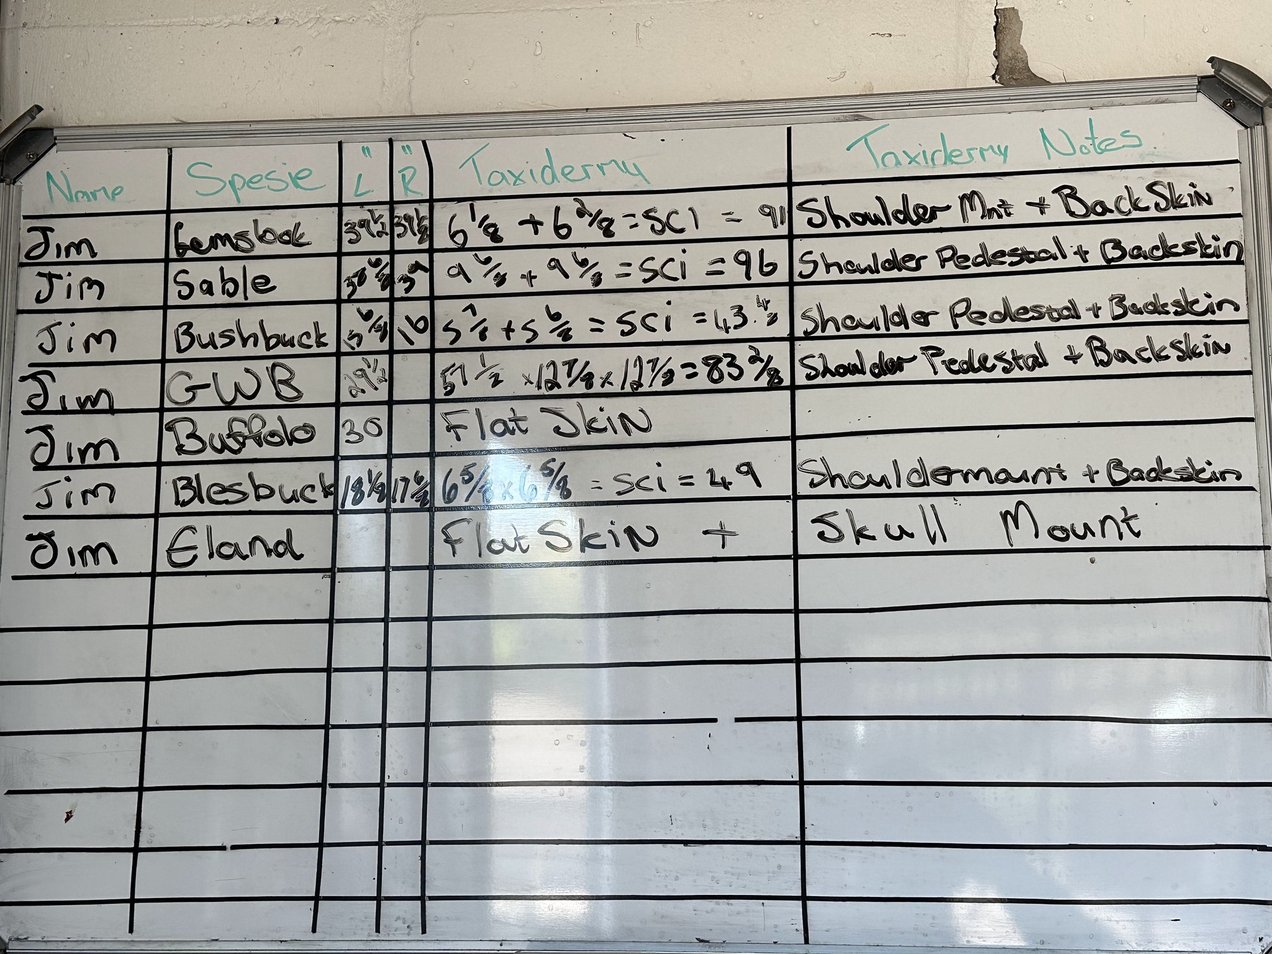 Name Spesie " L " R Taxidermy Taxidermy Notes
Jim Gemsbok 39 1/2 39 1/8 6 1/8 + 6 2/8 = SCI = 91 Shoulder Mnt + BackSkin
Jim Sable 9 6/8 + 9 6/8 = sci = 96 Shoulder Pedestal + Backskin
Jim Bushbuck 16 5 7/8 + 5 6/8 = sci = 43.4/8 Shoulder Pedestal + Backskin
Jim GWB 29 1/2 57 1/2 x 12 7/8 x 12 7/8 = 83 2/8 Shoulder Pedestal + Backskin
Jim Buffolo 30 Flat Skin
Jim Blesbuck 18 1/8 17 6/8 6 5/8 x 6 5/8 = sci = 49 Shouldermount + Backskin
Jim Eland Flat Skin + Skull Mount